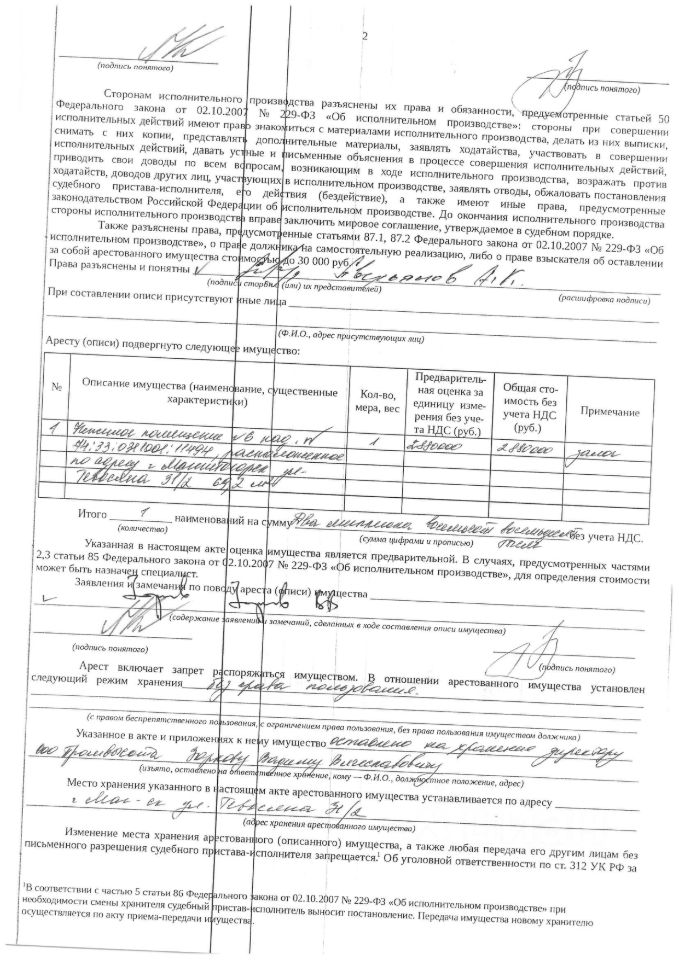 2
(подпись понятого)
(подпись понятого)
Сторонам исполнительного производства разъяснены их права и обязанности, предусмотренные статьей 50
Федерального закона от 02.10.2007 № 229-ФЗ «Об исполнительном производстве»: стороны при совершении
исполнительных действий имеют право знакомиться с материалами исполнительного производства, делать из них выписки,
снимать с них копии, представлять дополнительные материалы, заявлять ходатайства, участвовать в совершении
исполнительных действий, давать устные и письменные объяснения в процессе совершения исполнительных действий,
приводить свои доводы по всем вопросам, возникающим в ходе исполнительного производства, возражать против
ходатайств, доводов других лиц, участвующих в исполнительном производстве, заявлять отводы, обжаловать постановления
судебного пристава-исполнителя, его действия (бездействие), а также имеют иные права, предусмотренные
законодательством Российской Федерации об исполнительном производстве. До окончания исполнительного производства
стороны исполнительного производства вправе заключить мировое соглашение, утверждаемое в судебном порядке.
Также разъяснены права, предусмотренные статьями 87.1, 87.2 Федерального закона от 02.10.2007 № 229-ФЗ «Об
исполнительном производстве», о праве должника на самостоятельную реализацию, либо о праве взыскателя об оставлении
за собой арестованного имущества стоимостью до 30 000 руб.
Права разъяснены и понятны Аверьянов А.К.
(подписи сторон и (или) их представителей) (расшифровка подписи)
При составлении описи присутствуют иные лица
(Ф.И.О., адрес присутствующих лиц)
Аресту (описи) подвергнуто следующее имущество:
№ Описание имущества (наименование, существенные характеристики) Кол-во, мера, вес Предваритель-ная оценка за единицу изме-рения без уче-та НДС (руб.) Общая сто-имость без учета НДС (руб.) Примечание
1 Нежилое помещение №6 кад. № 1 2880000 2880000 залог
74:33:0311001:11494, расположенное
по адресу г. Магнитогорск ул.
Тевосяна 31/2 69,2 м2
Итого 1 наименований на сумму Два миллиона восемьсот восемьдесят без учета НДС.
(количество) (сумма цифрами и прописью) тысяч
Указанная в настоящем акте оценка имущества является предварительной. В случаях, предусмотренных частями
2,3 статьи 85 Федерального закона от 02.10.2007 № 229-ФЗ «Об исполнительном производстве», для определения стоимости
может быть назначен специалист.
Заявления и замечания по поводу ареста (описи) имущества
(содержание заявлений и замечаний, сделанных в ходе составления описи имущества)
(подпись понятого)
(подпись понятого)
Арест включает запрет распоряжаться имуществом. В отношении арестованного имущества установлен
следующий режим хранения без права пользования.
(с правом беспрепятственного пользования, с ограничением права пользования, без права пользования имуществом должника)
Указанное в акте и приложениях к нему имущество оставлено на хранение директору
ООО Промвысота Зоркову Вадиму Вячеславовичу
(изъято, оставлено на ответственное хранение, кому — Ф.И.О., должностное положение, адрес)
Место хранения указанного в настоящем акте арестованного имущества устанавливается по адресу
г. Маг-ск ул. Тевосяна 31/2
(адрес хранения арестованного имущества)
Изменение места хранения арестованного (описанного) имущества, а также любая передача его другим лицам без
письменного разрешения судебного пристава-исполнителя запрещается.¹ Об уголовной ответственности по ст. 312 УК РФ за
¹В соответствии с частью 5 статьи 86 Федерального закона от 02.10.2007 № 229-ФЗ «Об исполнительном производстве» при
необходимости смены хранителя судебный пристав-исполнитель выносит постановление. Передача имущества новому хранителю
осуществляется по акту приема-передачи имущества.